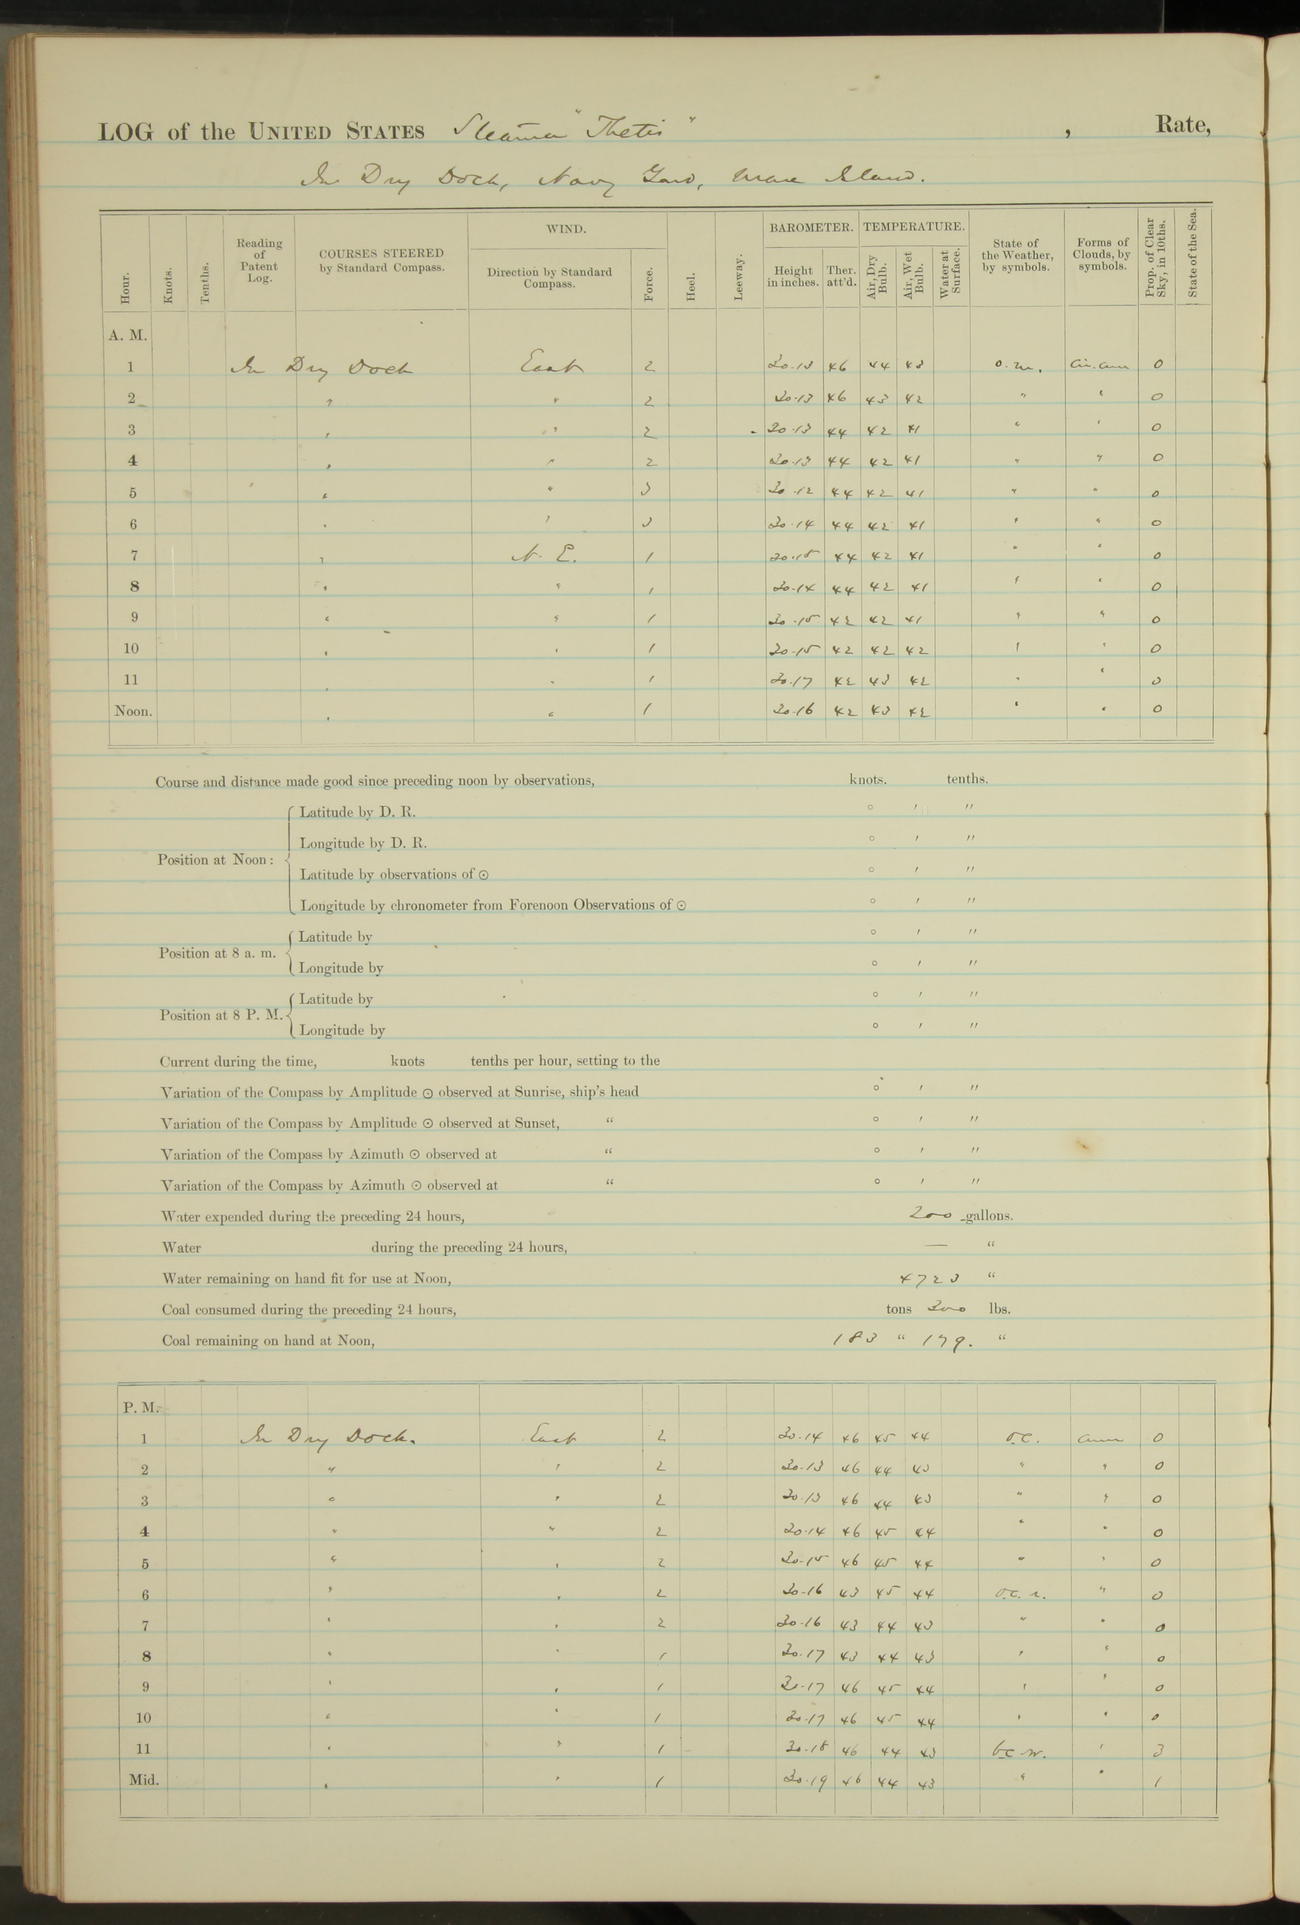 LOG of the UNITED STATES Steamer "Thetis" , Rate,
In Dry Dock, Navy Yard, Mare Island.
Hour. Knots. Tenths. Reading of Patent Log. COURSES STEERED by Standard Compass. WIND. Direction by Standard Compass. Force. Heel. Leeway. BAROMETER. Height in inches. Ther. att'd. TEMPERATURE. Air, Dry Bulb. Air, Wet Bulb. Water at Surface. State of the Weather, by symbols. Forms of Clouds, by symbols. Prop. of Clear Sky, in 10ths. State of the Sea.
A. M.
1 In Dry Dock East 2 30.13 46 44 43 o.m. cir.cum 0
2 " " 2 30.13 46 43 42 " " 0
3 " " 2 30.13 44 42 41 " " 0
4 " " 2 30.13 44 42 41 " " 0
5 " " 3 30.12 44 42 41 " " 0
6 " " 3 30.14 44 42 41 " " 0
7 " N. E. 1 30.15 44 42 41 " " 0
8 " " 1 30.14 44 42 41 " " 0
9 " " 1 30.15 42 42 41 " " 0
10 " " 1 30.15 42 42 42 " " 0
11 " " 1 30.17 42 43 42 " " 0
Noon. " " 1 30.16 42 43 42 " " 0
Course and distance made good since preceding noon by observations, knots. tenths.
Position at Noon: Latitude by D. R. ° ′ ″
Longitude by D. R. ° ′ ″
Latitude by observations of ⊙ ° ′ ″
Longitude by chronometer from Forenoon Observations of ⊙ ° ′ ″
Position at 8 a. m. Latitude by ° ′ ″
Longitude by ° ′ ″
Position at 8 P. M. Latitude by ° ′ ″
Longitude by ° ′ ″
Current during the time, knots tenths per hour, setting to the
Variation of the Compass by Amplitude ⊙ observed at Sunrise, ship's head ° ′ ″
Variation of the Compass by Amplitude ⊙ observed at Sunset, " ° ′ ″
Variation of the Compass by Azimuth ⊙ observed at " ° ′ ″
Variation of the Compass by Azimuth ⊙ observed at " ° ′ ″
Water expended during the preceding 24 hours, 200 gallons.
Water during the preceding 24 hours, — "
Water remaining on hand fit for use at Noon, 4723 "
Coal consumed during the preceding 24 hours, tons 300 lbs.
Coal remaining on hand at Noon, 183 " 179. "
P. M.
1 In Dry Dock. East 2 30.14 46 45 44 o.c. cum 0
2 " " 2 30.13 46 44 43 " " 0
3 " " 2 30.13 46 44 43 " " 0
4 " " 2 30.14 46 45 44 " " 0
5 " " 2 30.15 46 45 44 " " 0
6 " " 2 30.16 43 45 44 o.c. r. " 0
7 " " 2 30.16 43 44 43 " " 0
8 " " 1 30.17 43 44 43 " " 0
9 " " 1 30.17 46 45 44 " " 0
10 " " 1 30.17 46 45 44 " " 0
11 " " 1 30.18 46 44 43 b.c. m. " 3
Mid. " " 1 30.19 46 44 43 " " 1